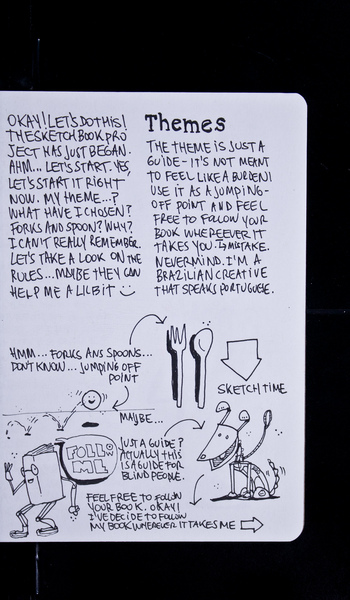 OKAY! LET'S DO THIS!
THE SKETCHBOOK PRO
JECT HAS JUST BEGAN.
AHM... LET'S START. YES,
LET'S START IT RIGHT
NOW. MY THEME...?
WHAT HAVE I CHOSEN?
FORKS AND SPOON? WHY?
I CAN'T REALLY REMEMBER.
LET'S TAKE A LOOK ON THE
RULES... MAYBE THEY CAN
HELP ME A LILBIT
Themes
THE THEME IS JUST A
GUIDE - IT'S NOT MEANT
TO FEEL LIKE A BURDEN!
USE IT AS A JUMPING-
OFF POINT AND FEEL
FREE TO FOLLOW YOUR
BOOK WHEREEVER IT
TAKES YOU. MISTAKE.
NEVERMIND. I'M A
BRAZILIAN CREATIVE
THAT SPEAKS PORTUGUESE.
HMM... FORKS ANS SPOONS...
DON'T KNOW... JUMPING OFF
POINT
SKETCH TIME
MAYBE...
JUST A GUIDE?
ACTUALLY THIS
IS A GUIDE FOR
BLIND PEOPLE.
FOLLOW
ME
FEEL FREE TO FOLLOW
YOUR BOOK. OKAY!
I'VE DECIDE TO FOLLOW
MY BOOK WHEREVER IT TAKES ME